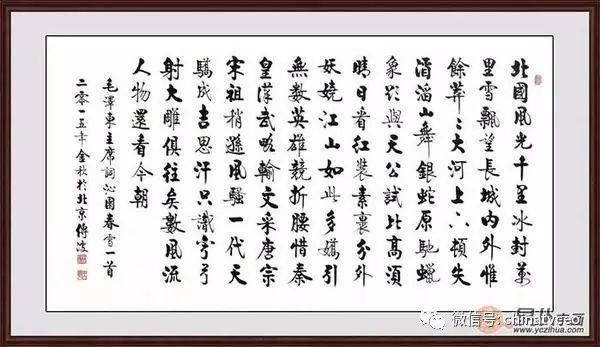 北國風光千里冰封萬
里雪飄望長城内外惟
餘莽々大河上下頓失
滔滔山舞銀蛇原馳蠟
象欲與天公試比高須
晴日看紅裝素裹分外
妖嬈江山如此多嬌引
無數英雄競折腰惜秦
皇漢武略輸文采唐宗
宋祖稍遜風騷一代天
驕成吉思汗只識彎弓
射大雕俱往矣數風流
人物還看今朝
毛澤東主席詞沁園春雪一首
二零一五年金秋於北京
微信号: chinatygeo
www.yczihua.com